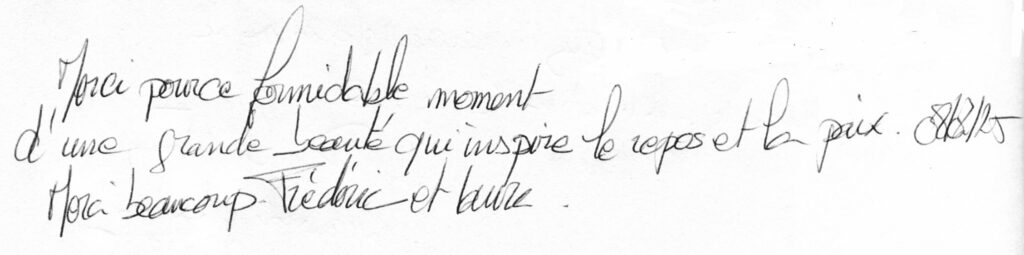 Merci pour ce formidable moment
d'une grande beauté qui inspire le repos et la paix. 08/02/25
Merci beaucoup Frédéric et Laure.